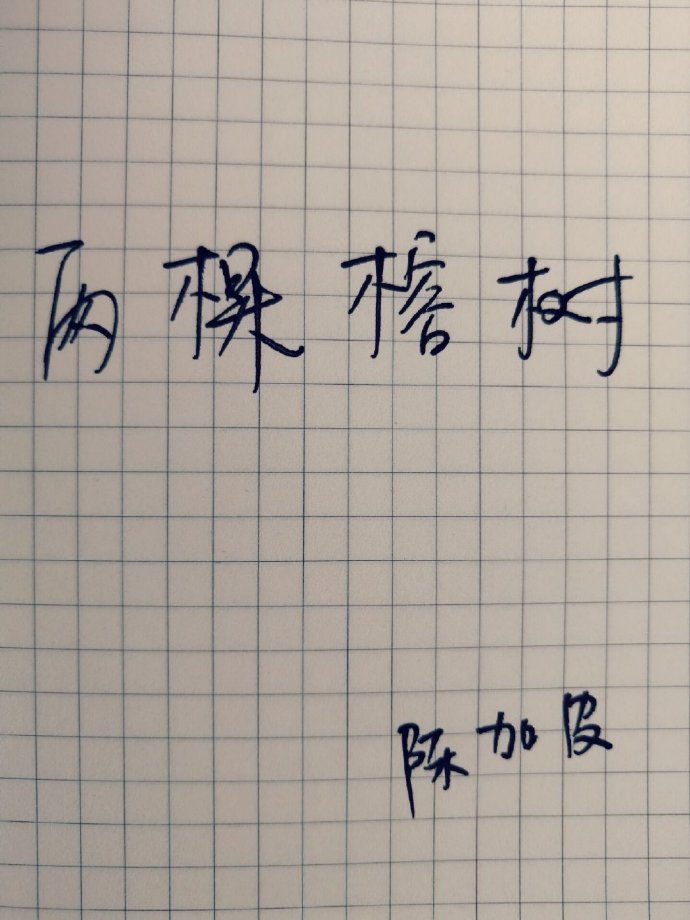 两棵榕树
陈加皮